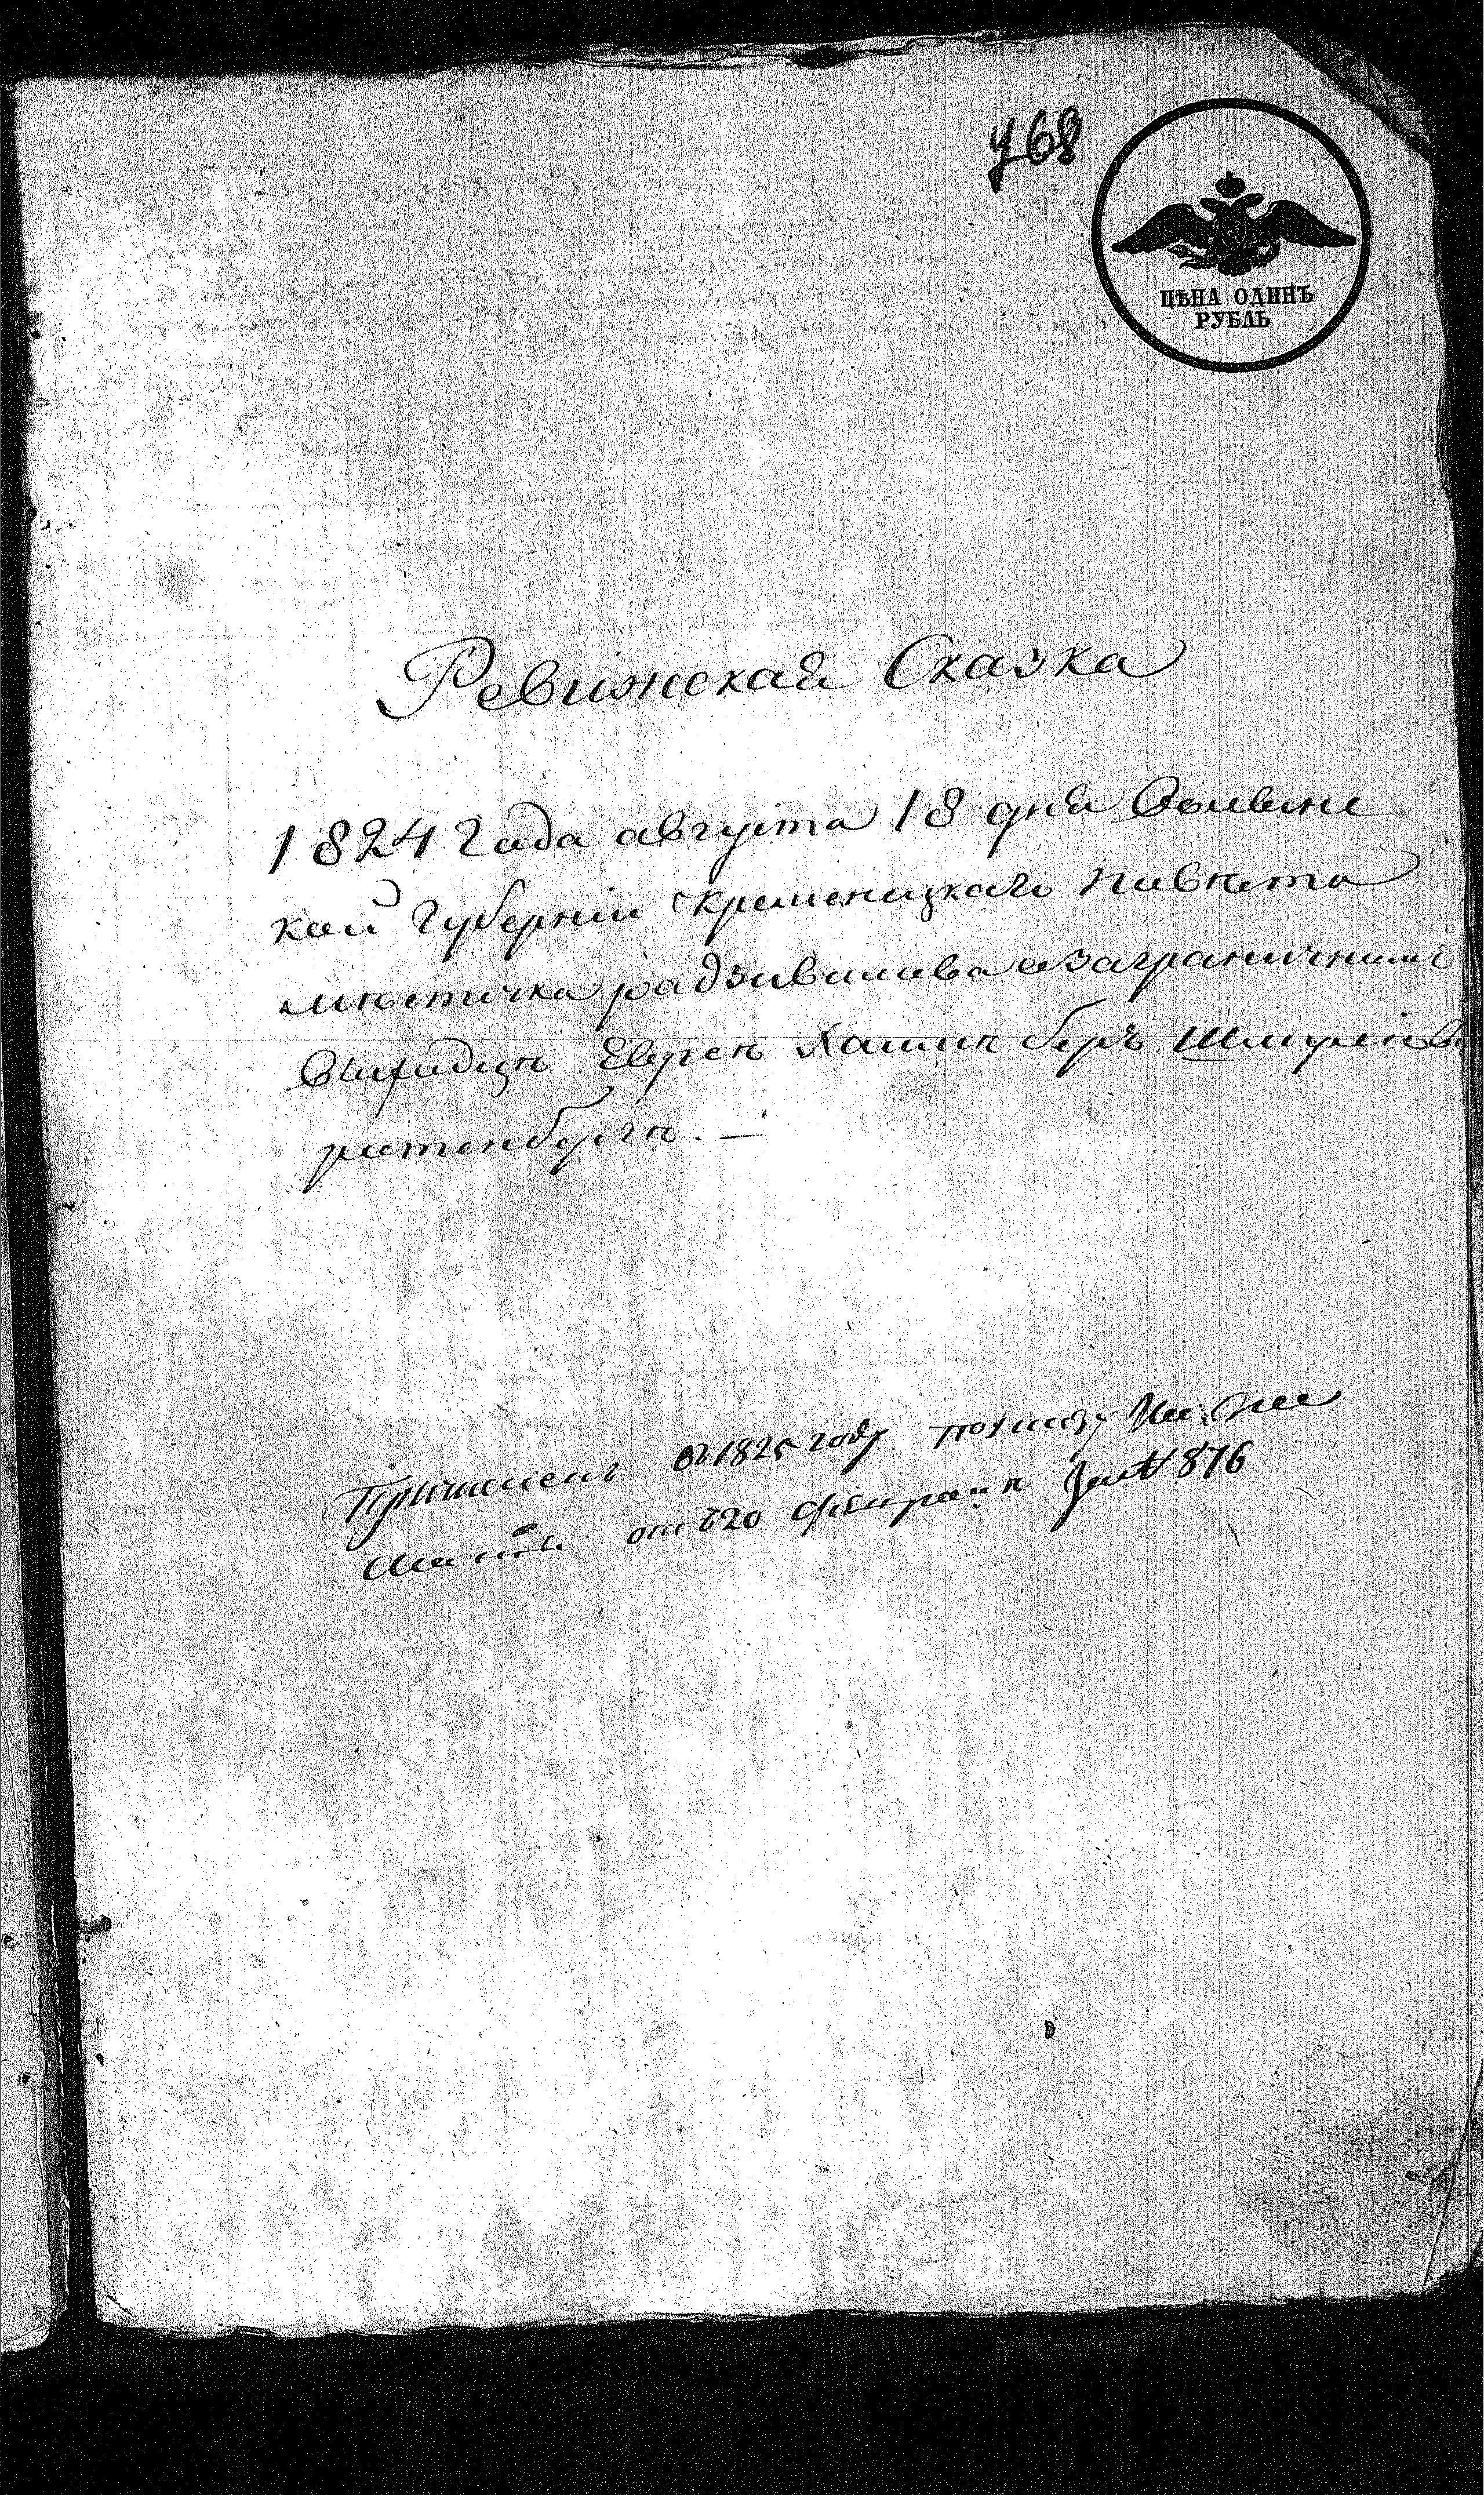 768
ЦѢНА ОДИНЪ
РУБЛЬ
Ревижская Сказка
1824 Года августа 18 дня Волынс
кой Губерніи Кременецкаго повета
местечка радзивилова о заграничнимъ
Выходцѣ Еврeѣ Хаимѣ беръ
ратенбергѣ. —
Причисленъ въ 1825 году по указу
отъ 20 февраля за № 876